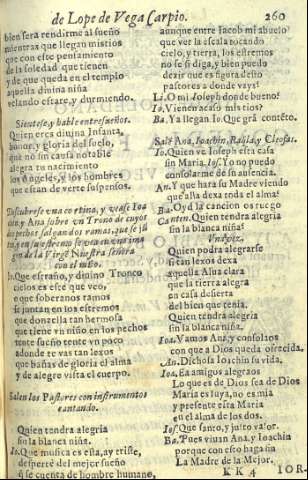 de Lope de Vega Carpio. 260
bien sera rendirme al sueño
mientras que llegan mis tios
que con este pensamiento
de la soledad que tienen
y de que queda en el tempio
aquella diuina niña
velando estare, y durmiendo.
Sientese, y hable entre sueños.
Quien eres diuina Infanta,
honor, y gloria del suelo,
que no sin causa notable
alegra tu nacimiento
los Angeles, y los hombres
que estan de verte suspensos.
Descubrese vna cortina, y vease Ioa
cin y Ana sobre vn Trono de cuyos
dos pechos salgan dos ramas, que se jū
tā y en su estremo se vea en vna ima
gen de la Virgē Nuestra señora
con el niño.
Io. Que estraño, y diuino Tronco
cielos es este que veo,
o que soberanos ramos
se juntan en los estremos
que donzella tan hermosa
que tiene vn niño en los pechos
tente sueño tente vn poco
adonde te vas tan lexos
que bañas de gloria el alma
y de alegre vista el cuerpo.
Salen los Pastores con instrumentos
cantando.
Quien tendra alegria
sin la blanca niña.
Io. Que musica es esta, ay triste,
desperte del mejor sueño
q̄ se cuenta de hombre humano,
aunque entre Iacob mi abuelo
que ver la escala tocando
cielo, y tierra, los estremos
no se si diga, y bien puedo
dezir que es figura desto
pastores a donde vays?
Li. O mi Ioseph donde bueno?
Io. Vienen acaso mis tios?
Ba. Ya llegan Io. Que grā contēto.
Salē Ana, Ioachin, Raqla, y Cleofas.
Io. Quien ve Ioseph esta casa
sin Maria. Ios. Yo no puedo
consolarme de su ausencia.
An. Y que hara su Madre viendo
que alla dexa toda el alma?
Ba. Oyd la cancion os ruego
Canten. Quien tendra alegria
sin la blanca niña?
Vnos.
Quien podra alegrarse
si tan lexos dexa
aquella Alua clara
que la tierra alegra
su casa desierta
del bien que tenia.
Quien tendra alegria
sin la blanca niña.
Ioa. Vamos Ana, y consolaos
con que a Dios queda ofrecida.
An. Dichosa Ioachin su vida.
Ioa. Ea amigos alegraos
Lo que es de Dios sea de Dios
Maria es suya, no es mia
y presente esta Maria
en el alma de los dos.
Ios. Que santo, y justo valor.
Ba. Pues viuan Ana, y Ioachin
porque con esso haga fin
La Madre de la Mejor.
KK 4 IOR-